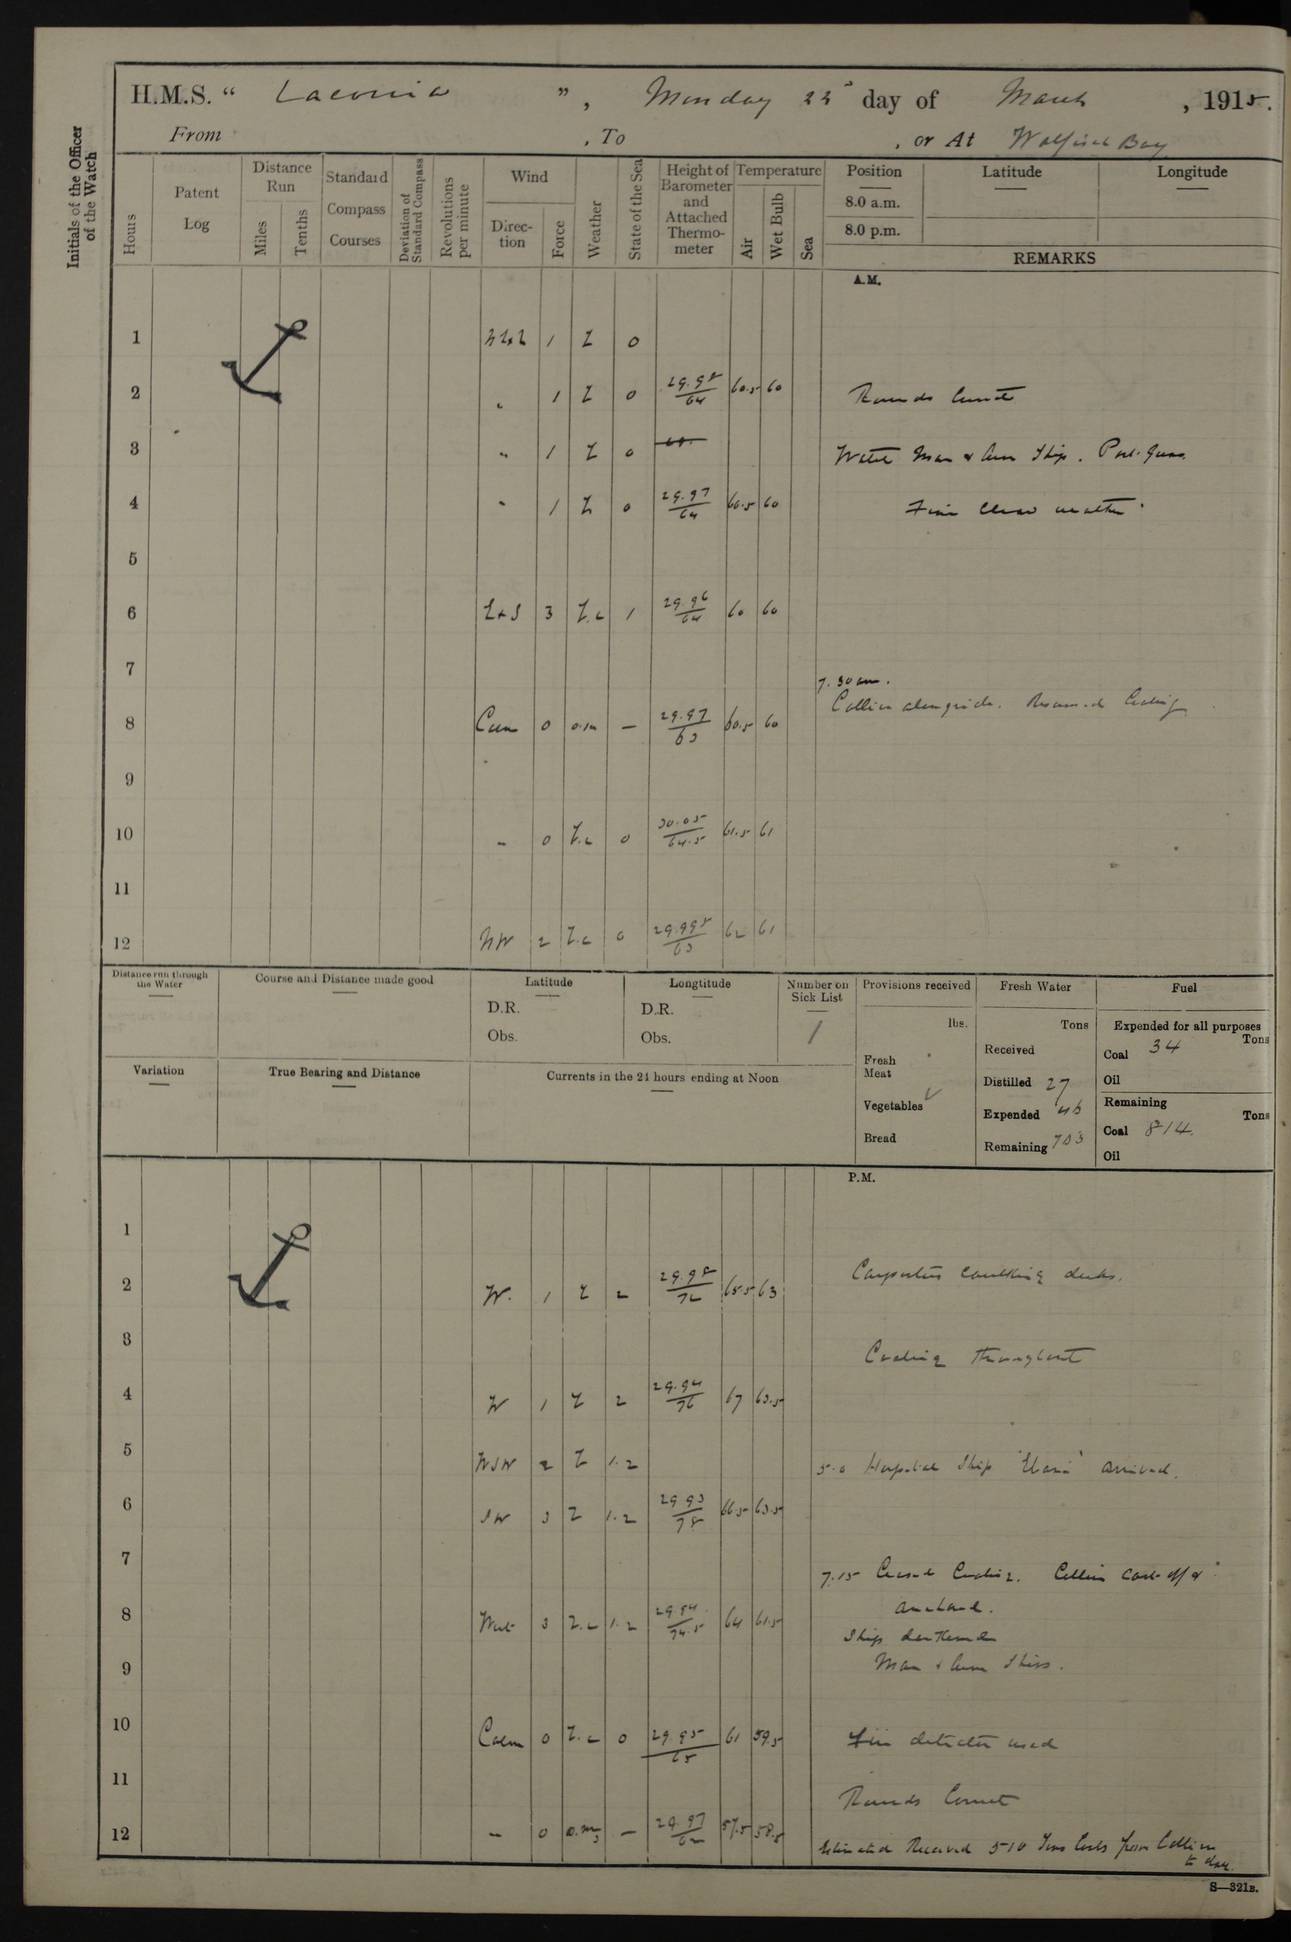 H.M.S. “ Laconia ”, Monday 22d day of March, 1915.
From , To , or At Walfisch Bay
Initials of the Officer of the Watch
Hours
Patent Log
Distance Run
Miles
Tenths
Standard Compass Courses
Deviation of Standard Compass
Revolutions per minute
Wind
Direction
Force
Weather
State of the Sea
Height of Barometer and Attached Thermometer
Temperature
Air
Wet Bulb
Sea
Position
8.0 a.m.
8.0 p.m.
Latitude
Longitude
REMARKS
A.M.
1 1 0
2 " 1 0 29.98/64 60.5 60 Rounds Correct
3 " 1 0 Watch Man & Arm Ship. Port Guns
4 " 1 0 29.97/64 60.5 60 Fine clear weather.
5
6 3 1 29.96/64 60 60
7 7.30 am.
Collier alongside. Resumed Coaling
8 Calm 0 o.m — 29.97/63 60.5 60
9
10 " 0 0 30.05/64.5 61.5 61
11
12 NW 2 0 29.998/63 62 61
Distance run through the Water
Course and Distance made good
Latitude
D.R.
Obs.
Longtitude
D.R.
Obs.
Number on Sick List
1
Provisions received
lbs.
Fresh Meat
Vegetables
Bread
Fresh Water
Tons
Received
Distilled 27
Expended 46
Remaining 703
Fuel
Expended for all purposes
Tons
Coal 34
Oil
Remaining
Tons
Coal 814
Oil
Variation
True Bearing and Distance
Currents in the 24 hours ending at Noon
P.M.
1
2 W. 1 2 29.98/72 65.5 63 Carpenters caulking decks.
3 Coaling throughout
4 W 1 2 29.94/76 67 63.5
5 WSW 2 1.2 5.0 Hospital Ship "Ebani" arrived.
6 SW 3 1.2 29.93/78 66.5 63.5
7 7.15 Ceased Coaling. Collier cast off &
anchored.
8 West 3 1.2 29.94/74.5 64 61.5 Ship darkened
9 Man & Arm Ships.
10 Calm 0 0 29.95/65 61 59.5 detector used
11 Rounds Correct
12 " 0 — 29.97/62 57.5 58.5 Estimated Received 510 Tons Coals from Collier
to day.
S—321B.